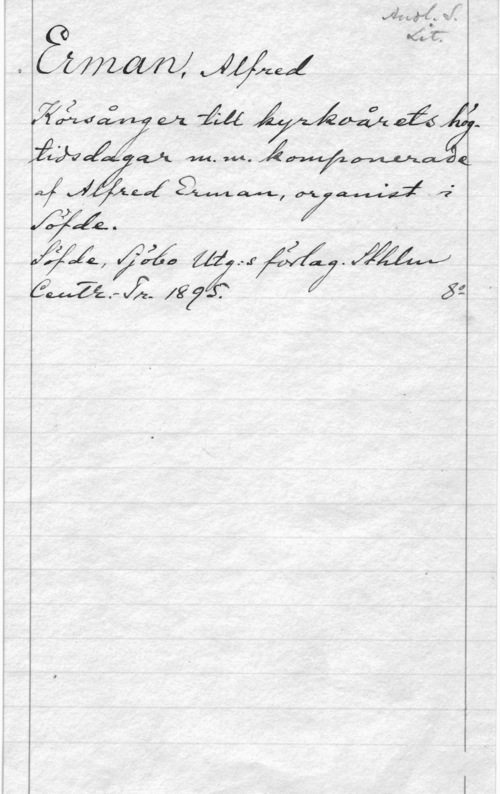 Andl. S.
Lit.
Erman, Alfred
Körsånger till kyrkoårets hög-
tidsdagar m. m. komponerade
af Alfred Erman, organist i
Söfde.
Söfde, Sjöbo Utg:s förlag. Sthlm
Centr.-Tr. 1895. 8º